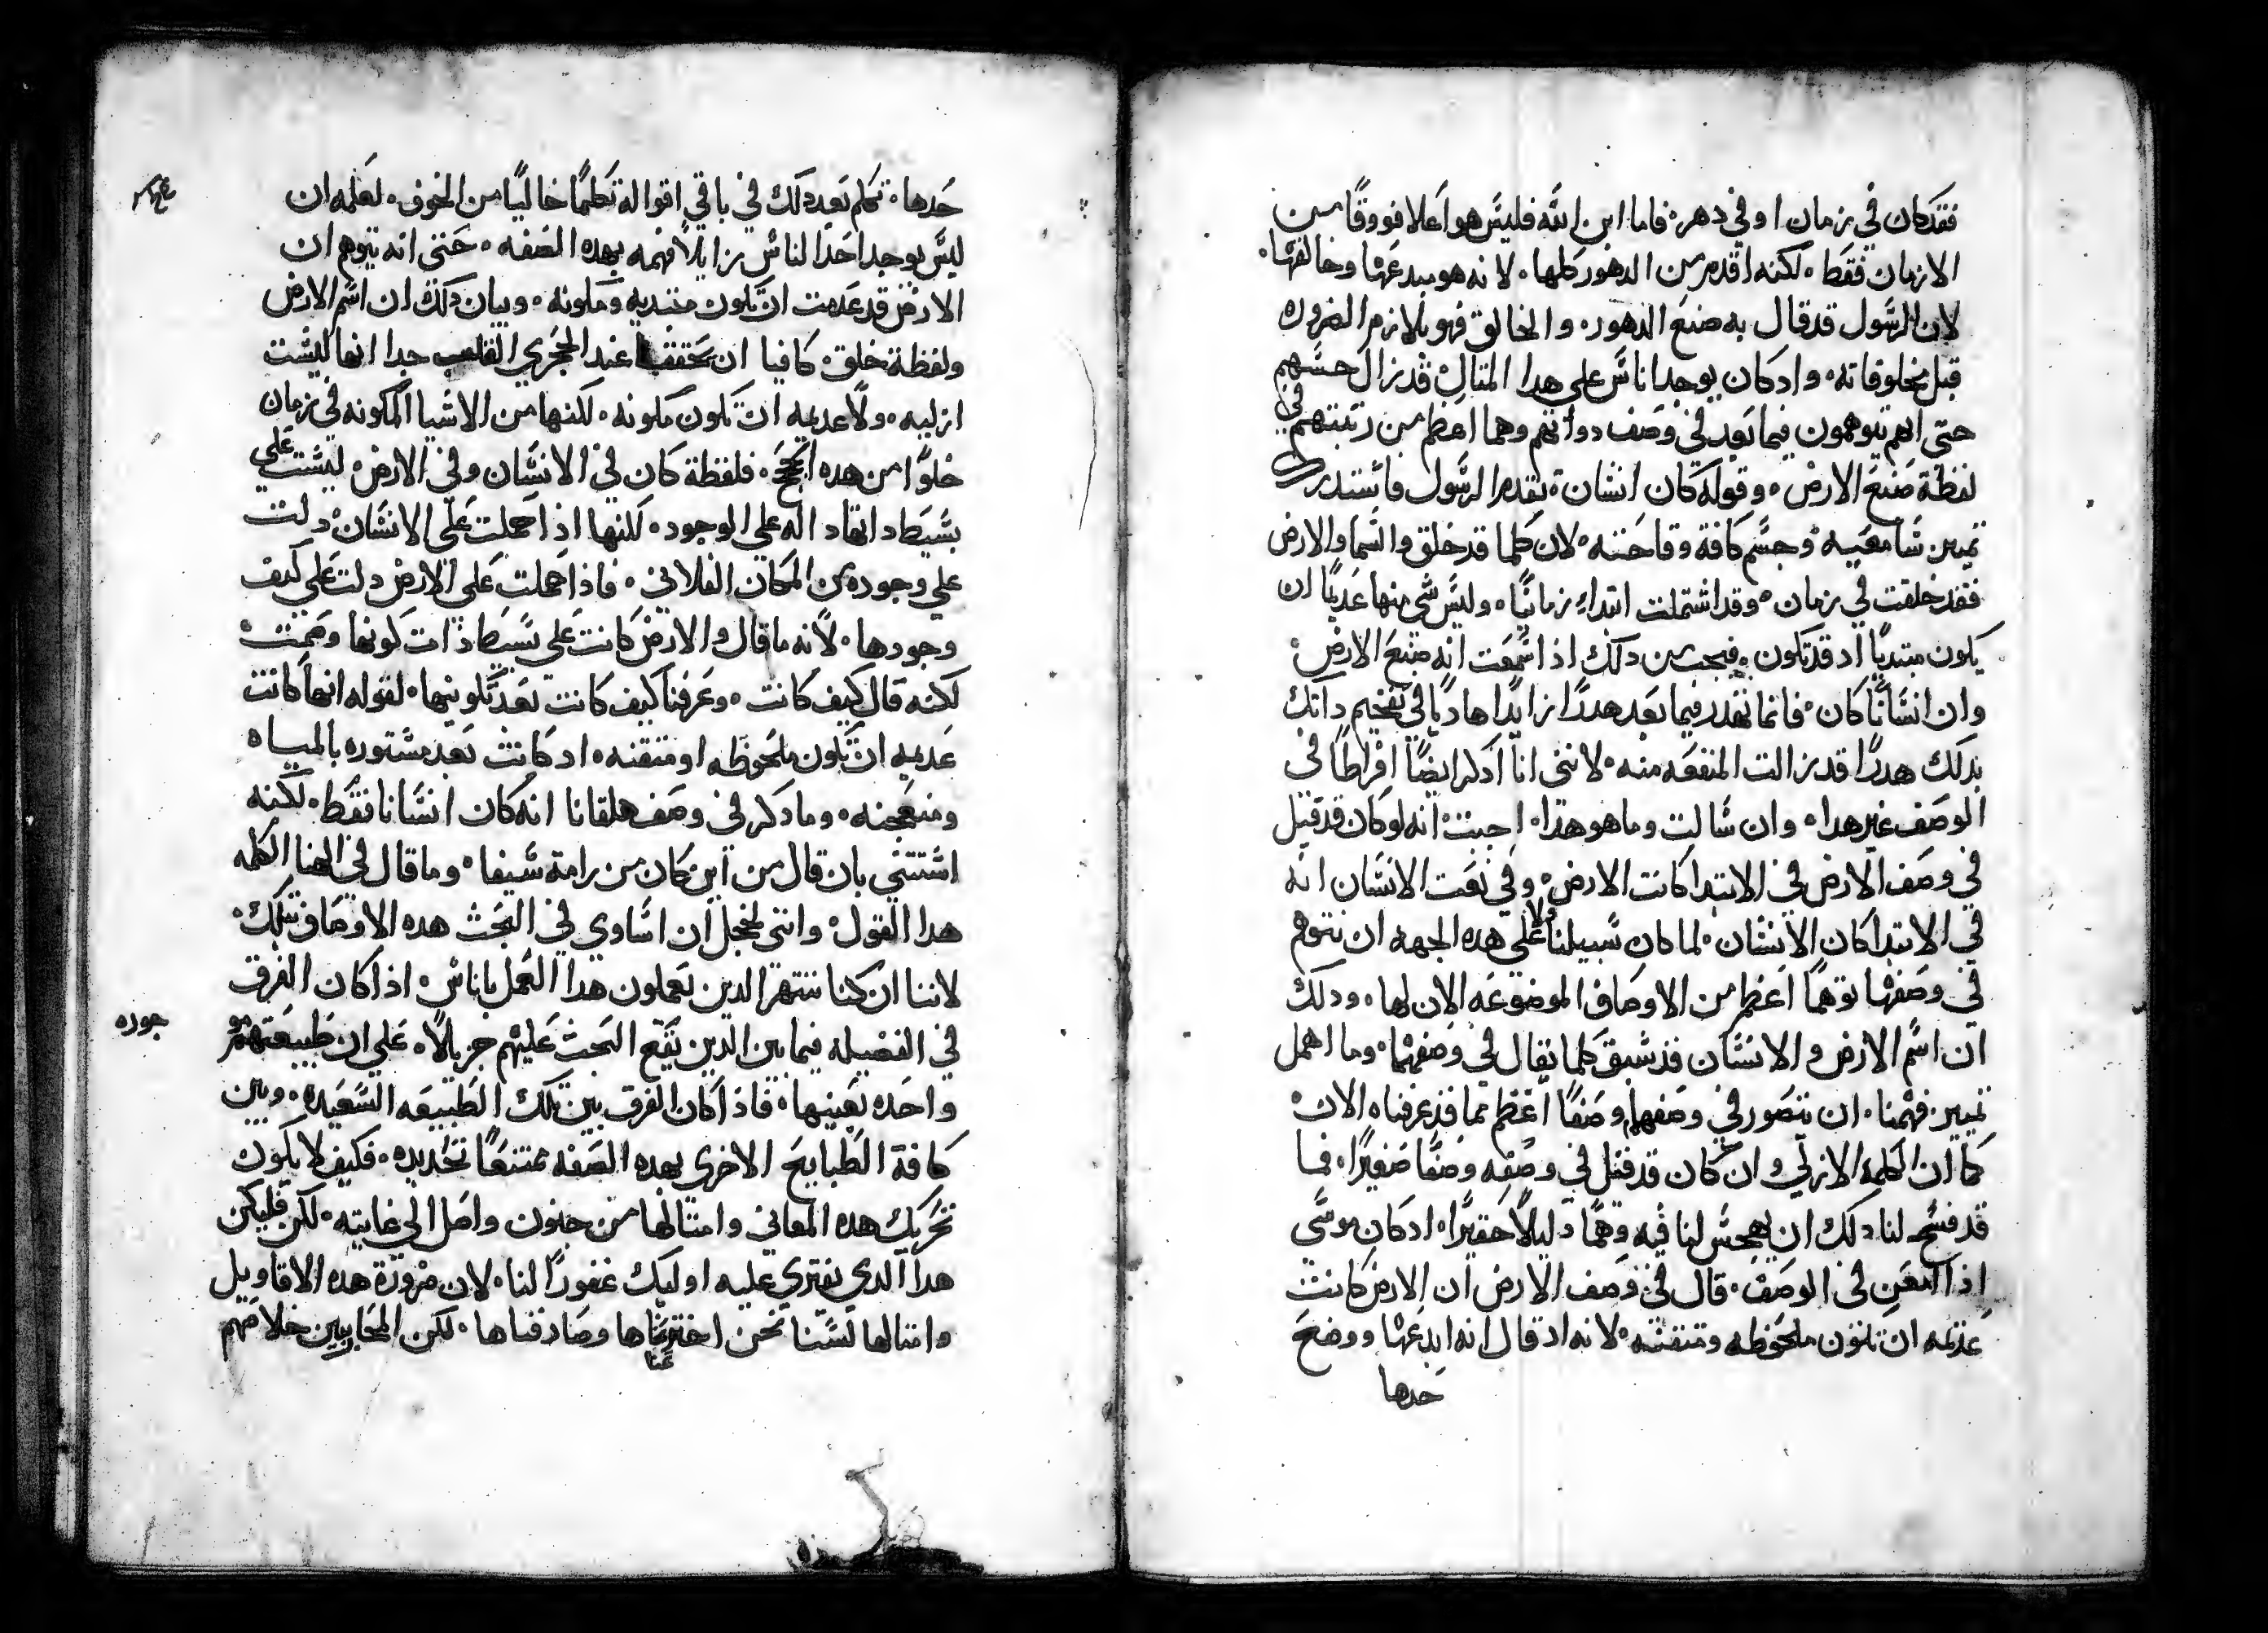 فقد كان في زمان او في دهر۰ فاما ابن الله فليس هو اعلا فووقًا من
الازمان فقط۰ لكنه اقدم من الدهور كلها۰ لانه هو مبدعها وخالقها۰
لان الرسول قد قال به صنع الدهور۰ والخالق فهو بلازم الضروره
قبل مخلوقاته۰ واد كان يوجد اناس علي هدا المتال قد زال حسهم
حتى انهم يتوهمون فيما بعد في وصف دواتهم وهما اعظم من رتبتهم في
لفظة صنع الارض۰ وقوله كان انسان۰ تقدم الرسول فاستدرك
تميز سامعيه۰ وجسم كافة وقاحته۰ لان كلما قد خلق والسما والارض
فقد خلقت في زمان۰ وقد اشتملت ابتداءِ زمانيًا۰ وليس شي منها عديمًا ان
يكون مبتديًا اد قد تكون۰ فيجب من دلك اذا سمعت انه صنع الارض
وان انسانًا كان۰ فانما تهدر فيما بعد هدرًا زايدًا هاديًا في تفخيم داتك
بدلك هدرًا قد زالت المنفعه منه۰ لانني انا ادكر ايضًا افراطًا في
الوصف غير هدا۰ وان سالت وما هو هدا۰ اجبت انه لو كان قد قيل
في وصف الارض في الابتدا كانت الارض۰ وفي نعت الانسان انه
في الابتدا كان الانسان۰ لما كان سبيلنا ولا علي هده الجهه ان نتوهم
في وصفها توهمًا اعظم من الاوصاف الموضوعه الان لها۰ ودلك
ان اسم الارض والانسان قد سبق كلما يقال في وصفهما۰ وما اهمل
تمييز فهمنا۰ ان نتصور في وصفهما وصفًا اعظم مما قد عرفناه الان
كما ان الكلمه الازلي وان كان قد قيل في وصفه وصفًا صغيرًا۰ فما
قد فسح لنا دلك ان يهجس لنا فيه وهمًا دليلاً حقيرًا۰ اد كان موسى
اذا امعن في الوصف۰ قال في وصف الارض ان الارض كانت
عديمه ان تكون ملحوظه ومتقنه۰ لانه اد قال انه ابدعها ووضع
حدها
حدها۰ تكلم بعد دلك في باقي اقواله تكلمًا خاليًا من الخوف۰ لعلمه ان
ليس يوجد احد الناس زايلاً فهمه بهده الصفه۰ حتى انه يتوهم ان
الارض قد عدمت ان تكون مبتديه ومكونه۰ وبيان دلك ان اسم الارض
ولفظة خلق۰ كافيا ان يحققا عند الحجري القلب جدا انها ليست
ازليه۰ ولا عديمه ان تكون مكونه۰ لكنها من الاشيا المكونه في زمان
خلوًا من هده الحجج۰ فلفظة كان في الانسان وفي الارض ليست علي
بسيط داتها داله علي الوجود۰ لكنها اذا حملت علي الانسان دلت
علي وجوده من المكان الفلاني۰ فاذا حملت علي الارض دلت علي كيف
وجودها۰ لانه ما قال والارض كانت علي بسيط ذات كونها وصمت
لكنه قال كيف كانت۰ وعرفنا كيف كانت بعد تكوينها۰ لقوله انها كانت
عديمه ان تكون ملحوظه او متقنه۰ اد كانت بعد مستوره بالمياه
ومنعجنه۰ وما دكر في وصف هلقانا انه كان انسانا فقط۰ لكنه
استثني بان قال من اين كان من رامة سيفا۰ وما قال في الهنا الكلمه
هدا القول۰ وانني لخجل ان اساوي في البحث هده الاوصاف بتلك۰
لاننا ان كنا ننتهر الدين يعملون هدا العمل باناس۰ اذا كان الفرق
في الفضيله فيما بين الدين يقع البحث عليهم جزيلاً۰ علي ان طبيعتهم هو
واحده بعينها۰ فاذا كان الفرق بين تلك الطبيعه السعيده۰ وبين
كافة الطبايع الاخرى بهده الصفه ممتنعًا تحديده۰ فكيف لا يكون
تحريك هده المعاني وامتالها من جنون واصل الي غايته۰ لكن فليكن
هدا الدي يفتري عليه اوليك غفورًا لنا۰ لان ضرورة هده الاقاويل
وامتالها لسنا نحن اخترعناها وصادفناها۰ لكن المحاربين خلاصهم